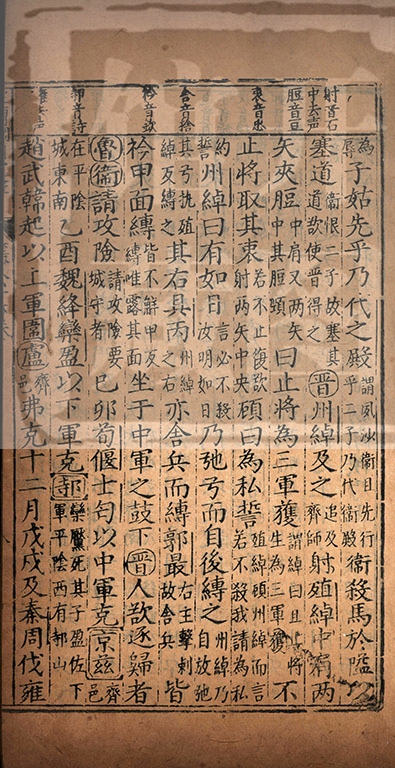 射音石
中去声
脰音豆
衷音忠
舍音捨
衿音欽
邿音詩
為辱子姑先乎乃代之殿謂夙沙衛曰先行殿乎二子乃代衛殿衛殺馬於隘以
塞道衛恨二子故塞其道欲使晉得之晉州綽及之追及齊師射殖綽中肩兩
矢夾脰中肩又兩矢中其脰頸曰止將為三軍獲謂綽曰且止將生為三軍獲不
止將取其衷若不止復欲射兩矢中央顧曰為私誓殖綽顧州綽而言若不殺我請為私
誓約州綽曰有如日言必不殺汝明如日乃弛弓而自後縛之州綽乃自放弛
其弓執殖綽反縛之其右具丙州綽之右亦舍兵而縛郭最右主擊刺故舍兵皆
衿甲面縛皆不解甲反縛唯露其面坐于中軍之鼓下晉人欲逐歸者
魯衛請攻險請攻險要城守者己卯荀偃士匄以中軍克京茲齊邑
在平陰城東南乙酉魏絳欒盈以下軍克邿欒黶死其子盈佐下軍平陰西有邿山
趙武韓起以上軍圍盧齊邑弗克十二月戊戌及秦周伐雍